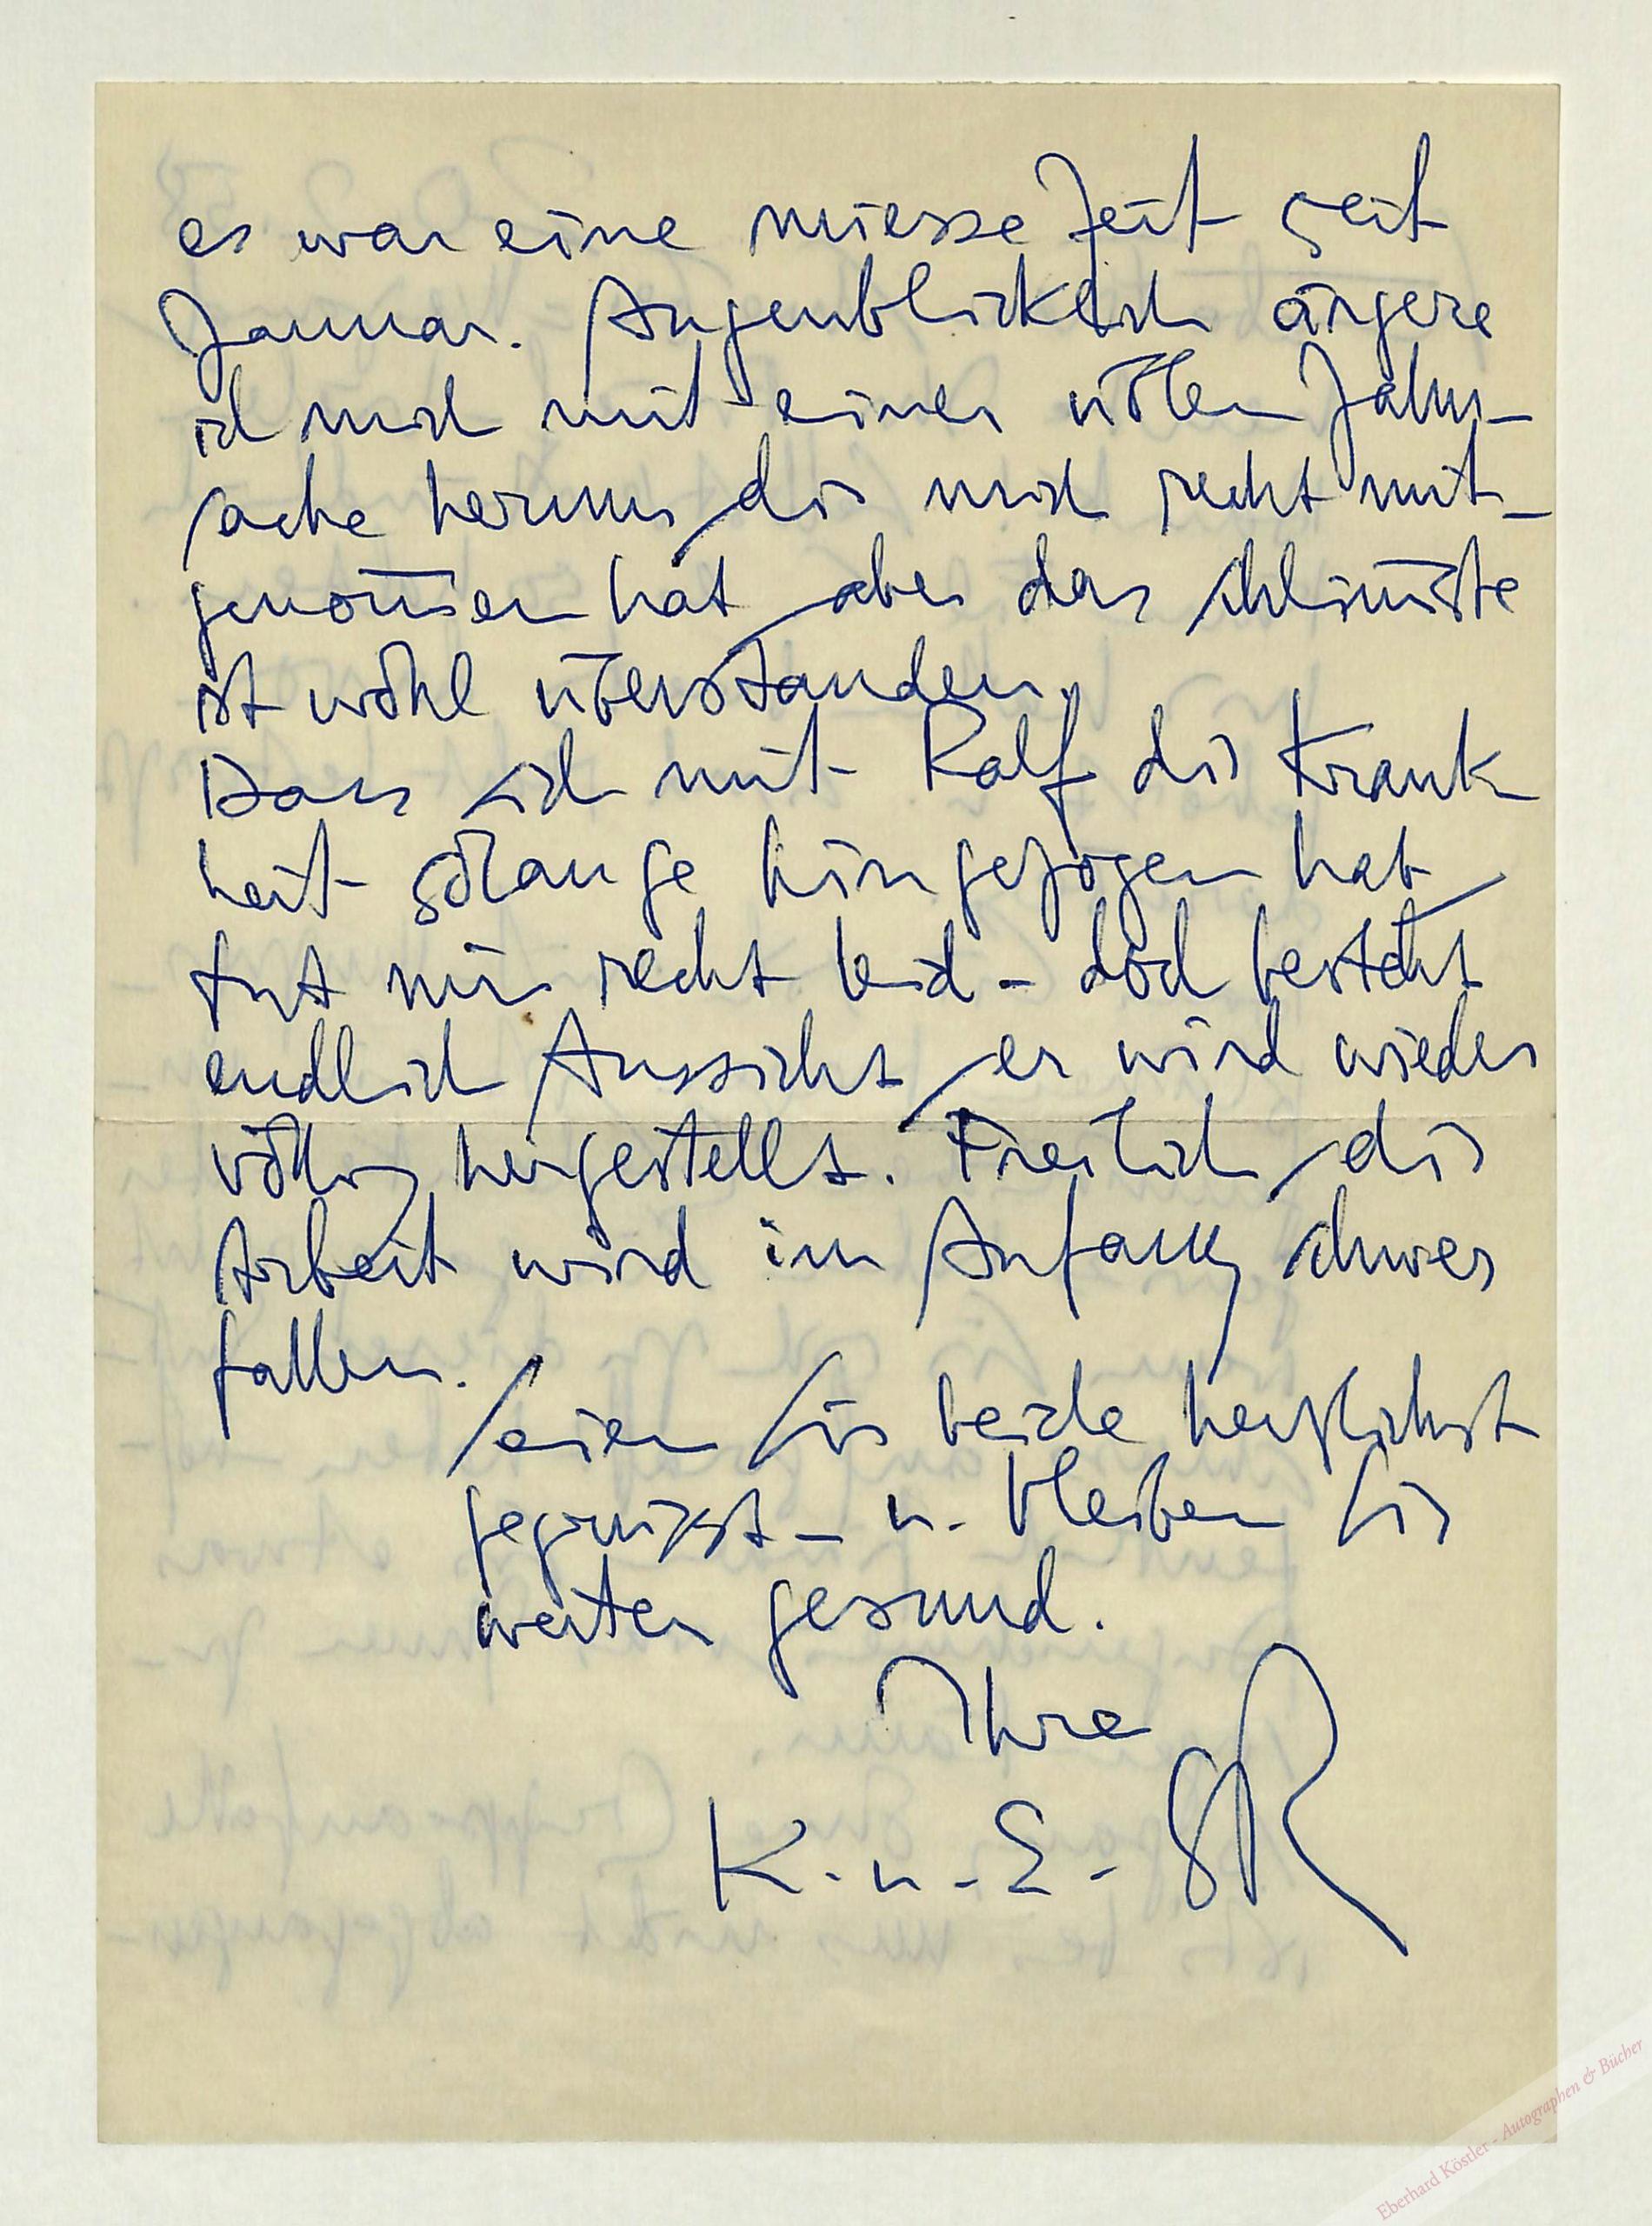 es war eine miesse Zeit seit
Januar. Augenblicklich ärgere
ich mich mit einer üblen Zahn-
sache herum, die mich recht mit-
genom̅en hat, aber das schlim̅ste
ist wohl überstanden.
Dass sich mit Ralf die Krank
heit solange hingezogen hat,
tut mir recht leid - doch besteht
endlich Aussicht, er wird wieder
völlig hergestellt. Freilich, die
Arbeit wird im Anfang schwer
fallen.
Seien Sie beide herzlichst
gegrüsst - u. bleiben Sie
weiter gesund.
Ihre
K. u. E. SR
Eberhard Köstler - Autographen & Bücher